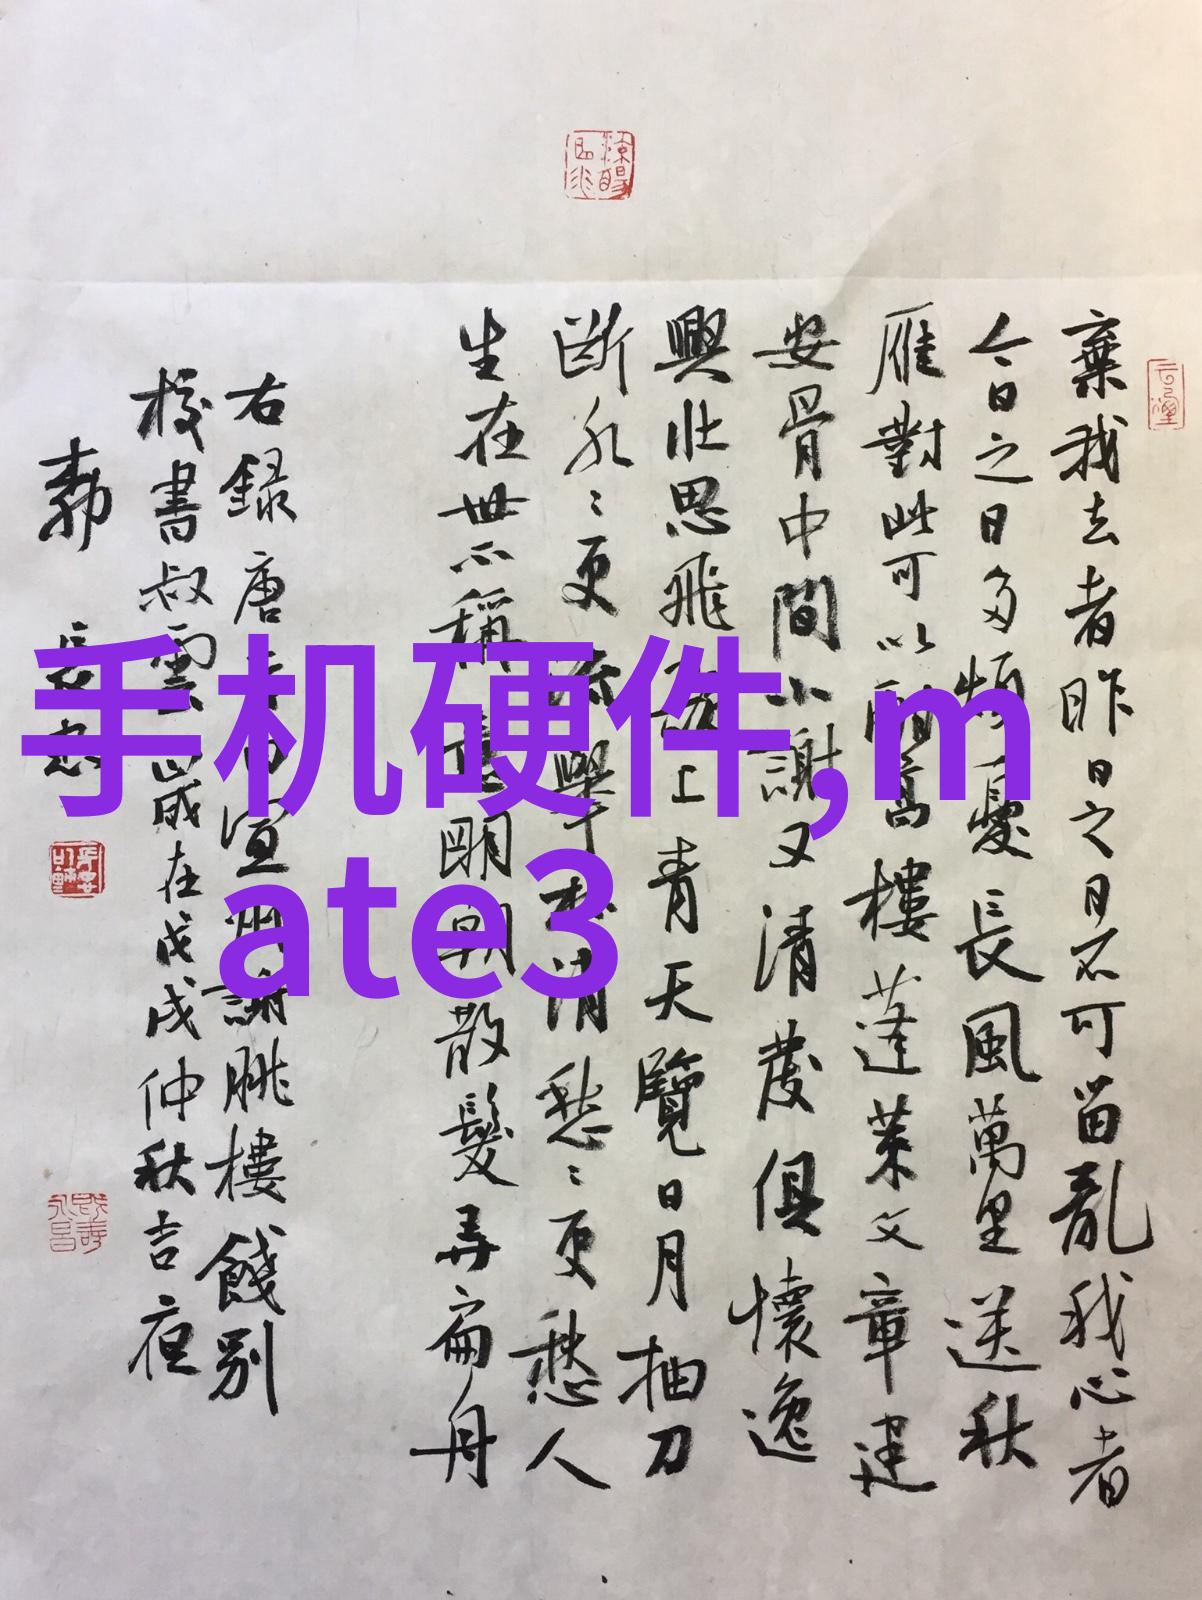 手机硬件,m
ate3
棄我去者昨日之日不可留亂我心者
今日之日多煩憂長風萬里送秋
雁對此可以酣高樓蓬萊文章建
安骨中間小謝又清發俱懷逸
興壯思飛欲上青天覽日月抽刀
斷水〻更流舉杯消愁〻更愁人
生在世不稱意明朝散髮弄扁舟
右録唐李白宣州謝朓樓餞別
校書叔雲歲在戊戌仲秋吉夜